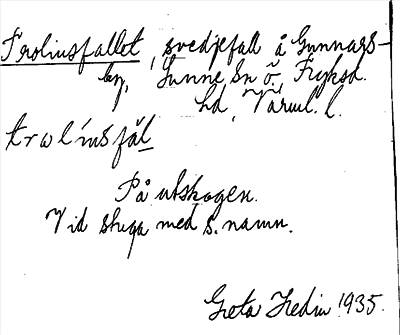 Froliusfallet, svedjefall å Gunnars-
by, Sunne sn ö., Fryksd.
hd, Värml. l.
På utskogen.
Vid stuga med s. namn.
Greta Hedin 1935.